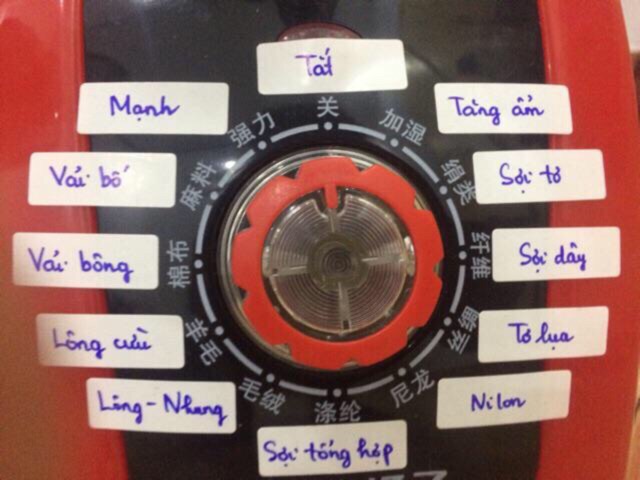 Tắt
Mạnh
Tăng ẩm
关
强力
加湿
Vải bố
麻料
绢类
Sợi tơ
Vải bông
棉布
纤维
Sợi dây
Lông cừu
羊毛
蚕丝
Tơ lụa
Lông-Nhung
毛绒
涤纶
尼龙
Nilon
Sợi tổng hợp